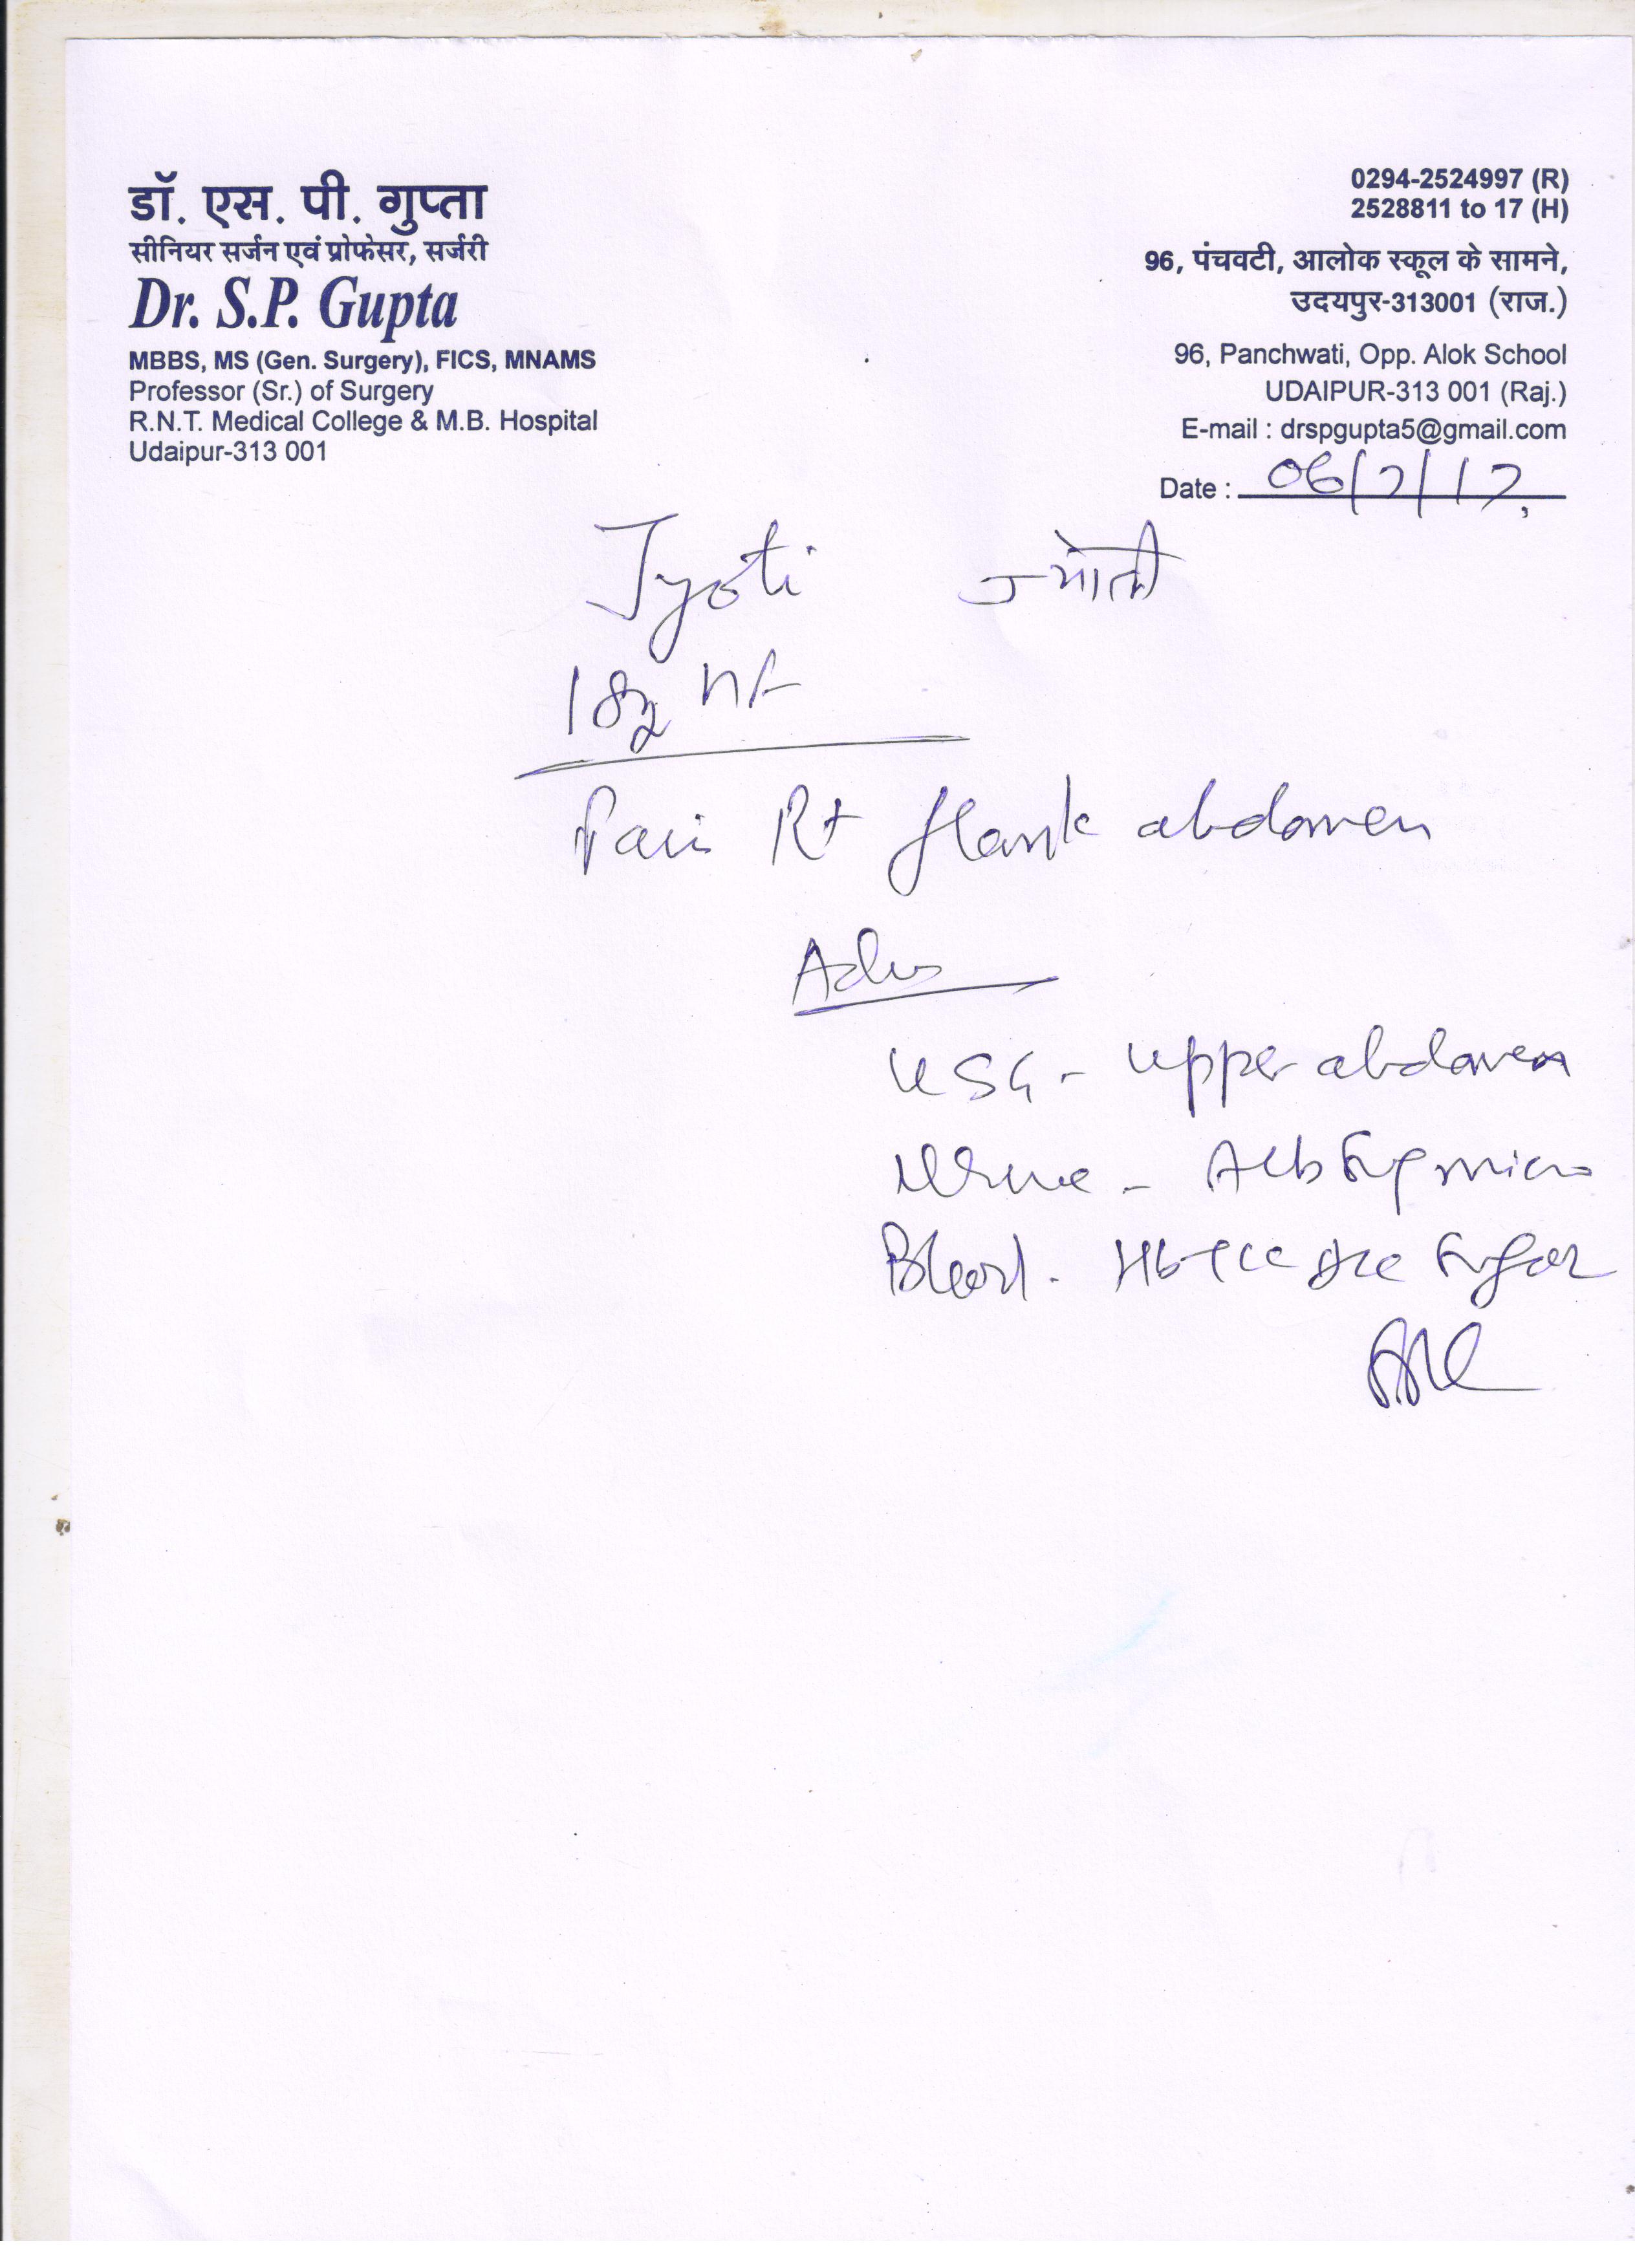 डॉ. एस. पी. गुप्ता
सीनियर सर्जन एवं प्रोफेसर, सर्जरी
Dr. S.P. Gupta
MBBS, MS (Gen. Surgery), FICS, MNAMS
Professor (Sr.) of Surgery
R.N.T. Medical College & M.B. Hospital
Udaipur-313 001
0294-2524997 (R)
2528811 to 17 (H)
96, पंचवटी, आलोक स्कूल के सामने,
उदयपुर-313001 (राज.)
96, Panchwati, Opp. Alok School
UDAIPUR-313 001 (Raj.)
E-mail : drspgupta5@gmail.com
Date : 06/7/17
Jyoti ज्योती
18y
Pain Rt flank abdomen
Adv
USG - upper abdomen
Urine - Alb Sug micro
Blood - Hb TLC DLC Sugar